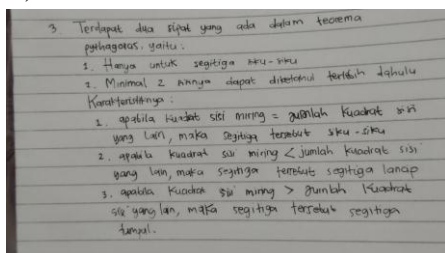 3. Terdapat dua sifat yang ada dalam teorema
pythagoras, yaitu :
1. Hanya untuk segitiga siku-siku
2. Minimal 2 sisinya dapat diketahui terlebih dahulu
Karakteristiknya :
1. apabila kuadrat sisi miring = jumlah kuadrat sisi
yang lain, maka segitiga tersebut siku-siku
2. apabila kuadrat sisi miring < jumlah kuadrat sisi
yang lain, maka segitiga tersebut segitiga lancip
3. apabila kuadrat sisi miring > jumlah kuadrat
sisi yang lain, maka segitiga tersebut segitiga
tumpul.